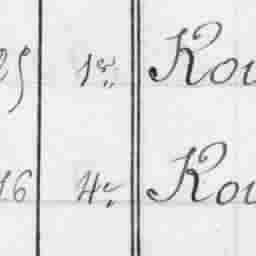 25 1er. Kou
16 4e. Kou